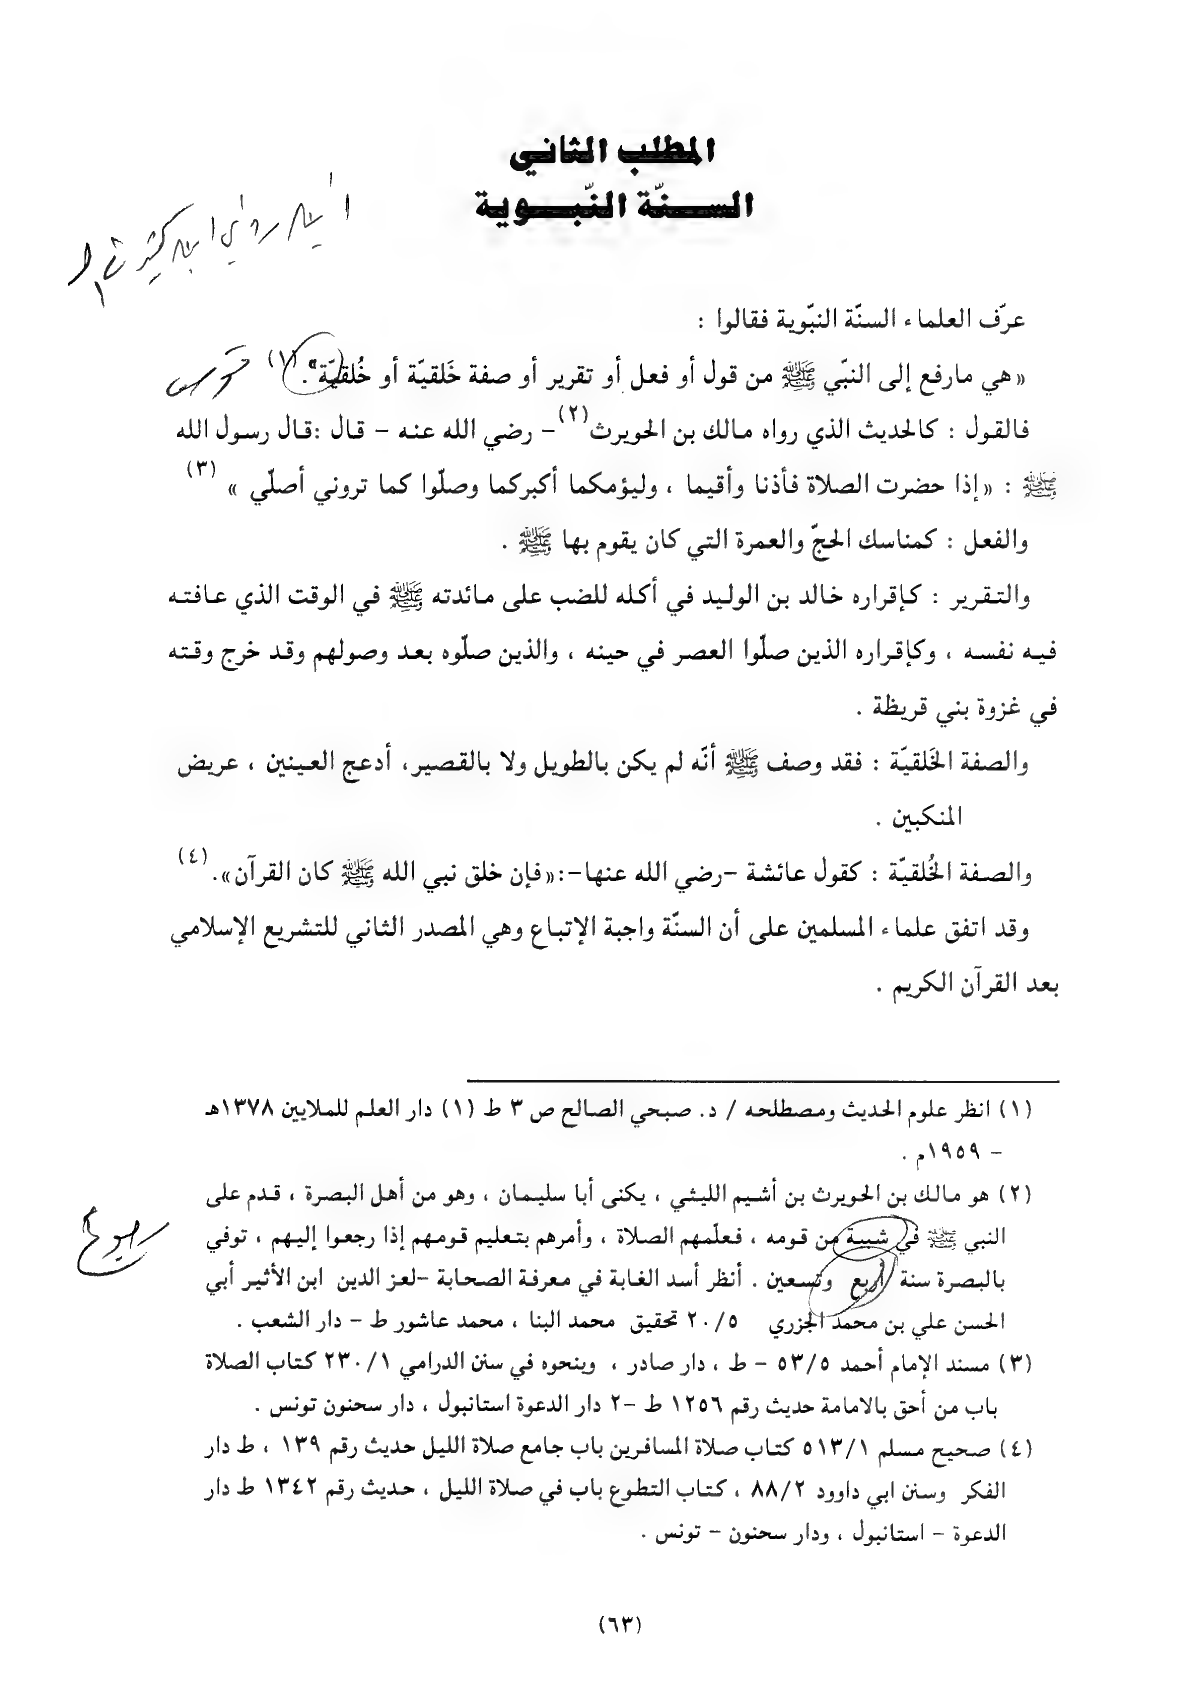 المطلب الثاني
السنّة النّبوية
عرّف العلماء السنّة النبّوية فقالوا :
«هي مارفع إلى النبّي ﷺ من قول أو فعل أو تقرير أو صفة خَلقيّة أو خُلقيّة». (١)
فالقول : كالحديث الذي رواه مالك بن الحويرث(٢)– رضي الله عنه – قال :قال رسول الله
ﷺ : «إذا حضرت الصلاة فأذنا وأقيما ، وليؤمكما أكبركما وصلّوا كما تروني أصلّي » (٣)
والفعل : كمناسك الحجّ والعمرة التي كان يقوم بها ﷺ .
والتقرير : كإقراره خالد بن الوليد في أكله للضب على مائدته ﷺ في الوقت الذي عافته
فيه نفسه ، وكإقراره الذين صلّوا العصر في حينه ، والذين صلّوه بعد وصولهم وقد خرج وقته
في غزوة بني قريظة .
والصفة الخَلقيّة : فقد وصف ﷺ أنّه لم يكن بالطويل ولا بالقصير، أدعج العينين ، عريض
المنكبين .
والصفة الخُلقيّة : كقول عائشة –رضي الله عنها–:«فإن خلق نبي الله ﷺ كان القرآن». (٤)
وقد اتفق علماء المسلمين على أن السنّة واجبة الإتباع وهي المصدر الثاني للتشريع الإسلامي
بعد القرآن الكريم .
(١) انظر علوم الحديث ومصطلحه / د. صبحي الصالح ص ٣ ط (١) دار العلم للملايين ١٣٧٨هـ
– ١٩٥٩م .
(٢) هو مالك بن الحويرث بن أشيم الليثي ، يكنى أبا سليمان ، وهو من أهل البصرة ، قدم على
النبي ﷺ في شببة من قومه ، فعلّمهم الصلاة ، وأمرهم بتعليم قومهم إذا رجعوا إليهم ، توفي
بالبصرة سنة أربع وتسعين . أنظر أسد الغابة في معرفة الصحابة –لعز الدين ابن الأثير أبي
الحسن علي بن محمد الجزري ٢٠/٥ تحقيق محمد البنا ، محمد عاشور ط – دار الشعب .
(٣) مسند الإمام أحمد ٥٣/٥ – ط ، دار صادر ، وبنحوه في سنن الدرامي ٢٣٠/١ كتاب الصلاة
باب من أحق بالامامة حديث رقم ١٢٥٦ ط –٢ دار الدعوة استانبول ، دار سحنون تونس .
(٤) صحيح مسلم ٥١٣/١ كتاب صلاة المسافرين باب جامع صلاة الليل حديث رقم ١٣٩ ، ط دار
الفكر وسنن ابي داوود ٨٨/٢ ، كتاب التطوع باب في صلاة الليل ، حديث رقم ١٣٤٢ ط دار
الدعوة – استانبول ، ودار سحنون – تونس .
(٦٣)